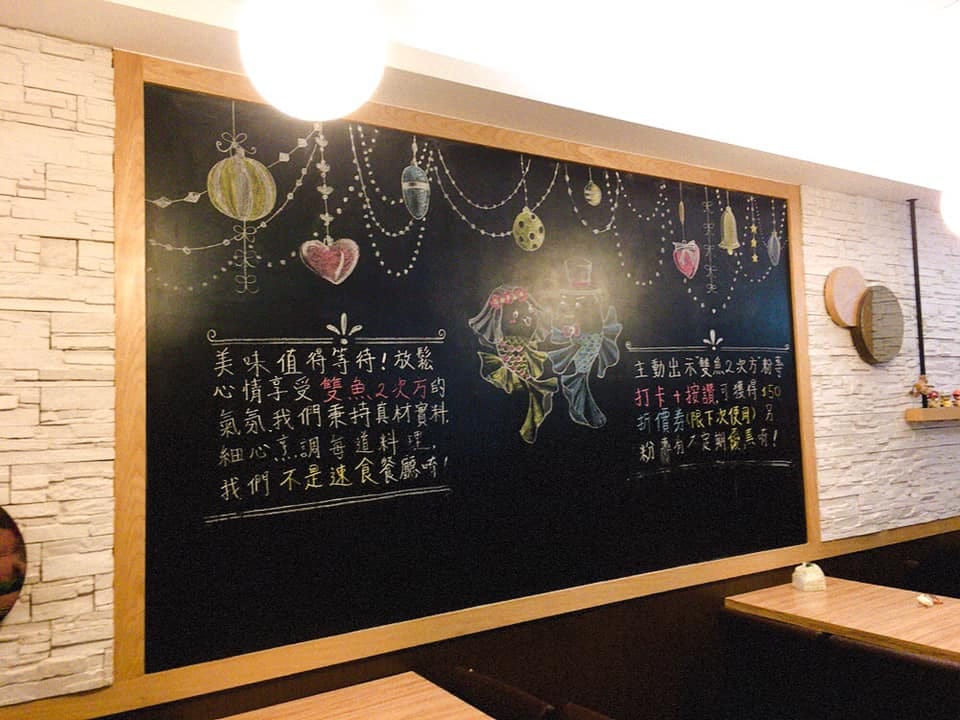 美味值得等待!放鬆
心情享受雙魚2次方的
氣氛,我們秉持真材實料,
細心烹調每道料理,
我們不是速食餐廳唷!
主動出示雙魚2次方粉專
打卡+按讚,可獲得$50
折價券(限下次使用)另
粉專有不定期優惠唷!